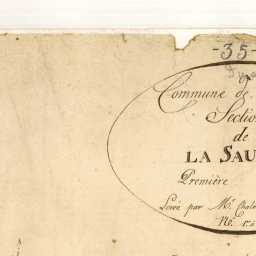 -35-
Commune de
Section
de
LA SAU
Première
Levée par Mr.
No. 1.